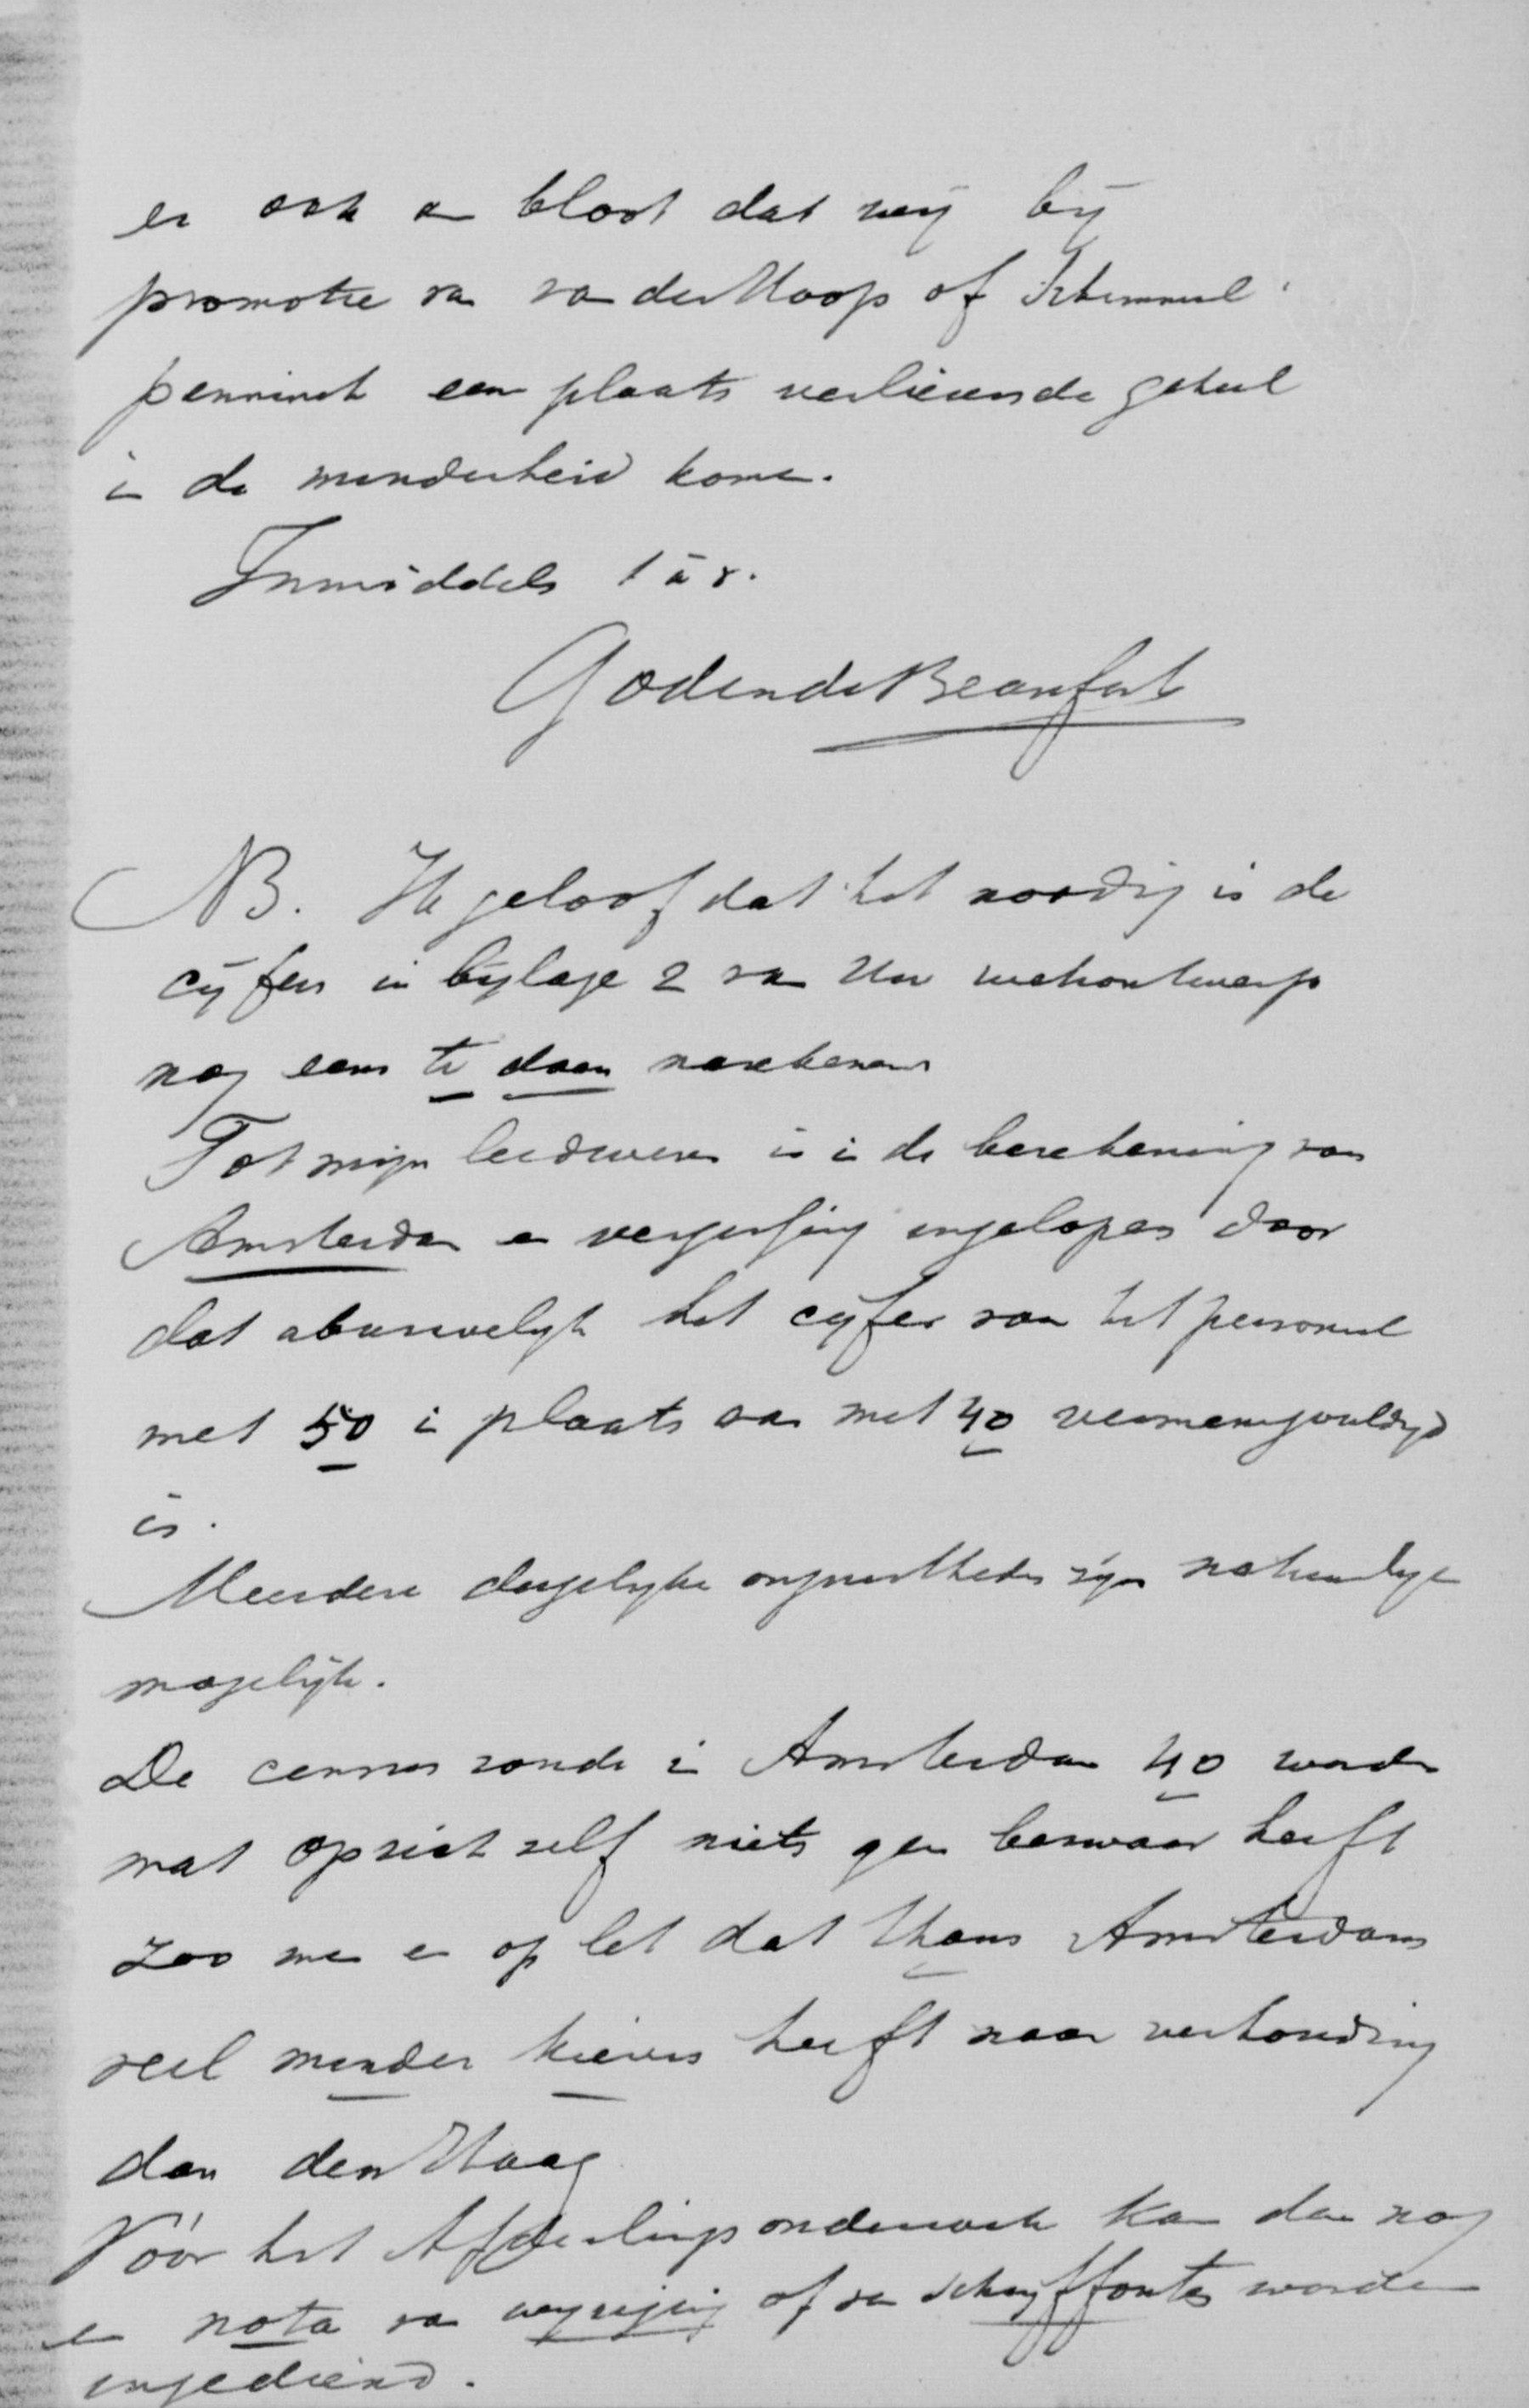 er ook aan bloot dat wij bij
promotie van van der Hoop of Schimmel-
penninck een plaats verliezende geheel
in de minderheid komen.
Inmiddels t. à v.
Godin de Beaufort
NB. Ik geloof dat het noodig is de
cijfers in bijlage 2 van Uw wetsontwerp
nog eens te doen narekenen
Tot mijn leedwezen is in de berekening van
Amsterdam en vergissing ingeslopen door
dat abusivelijk het cijfer van het personeel
met 50 in plaats van met 40 vermenigvuldigd
is.
Meerdere dergelijke onjuistheden zijn natuurlijk
mogelijk.
De census zoude in Amsterdam 40 worden
wat op zich zelf niets geen bezwaar heeft
zoo men er op let dat thans Amsterdam
veel minder kiezers heeft naar verhouding
dan den Haag
Vóór het Afdeelingsonderzoek kan dan nog
een nota van wijziging of van schrijffouten worden
ingediend.